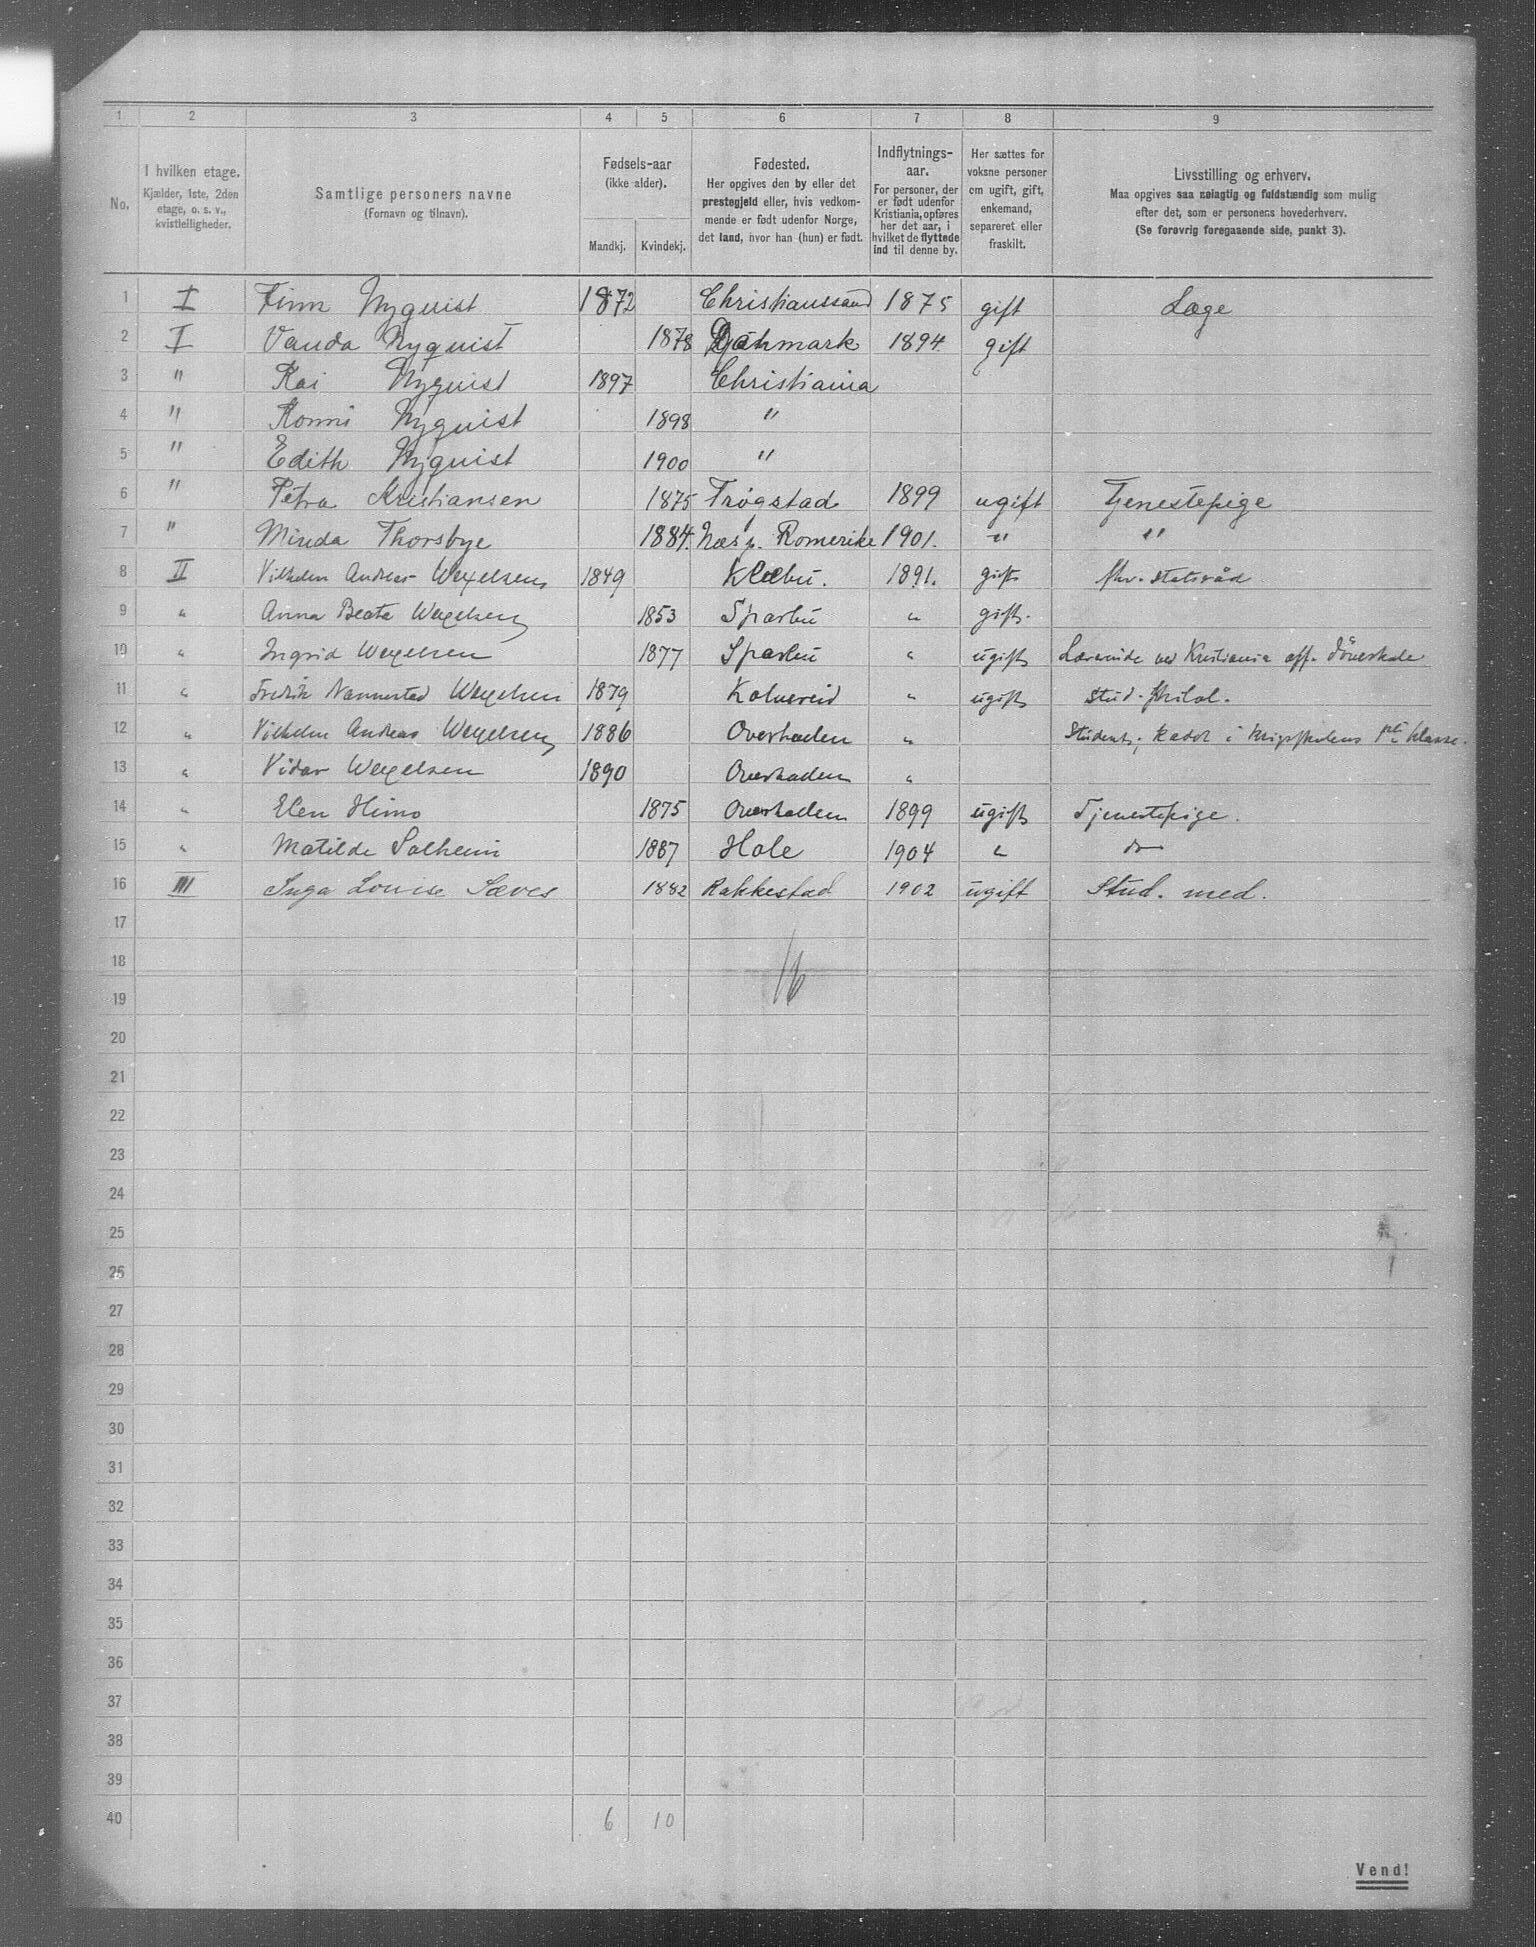 1 2 3 4 5 6 7 8 9
No.
I hvilken etage.
Kjælder, 1ste, 2den
etage, o. s. v.,
kvistleiligheder.
Samtlige personers navne
(Fornavn og tilnavn).
Fødsels-aar
(ikke alder).
Mandkj. Kvindekj.
Fødested.
Her opgives den by eller det
prestegjeld eller, hvis vedkom-
mende er født udenfor Norge,
det land, hvor han (hun) er født.
Indflytnings-
aar.
For personer, der
er født udenfor
Kristiania, opføres
her det aar, i
hvilket de flyttede
ind til denne by.
Her sættes for
voksne personer
om ugift, gift,
enkemand,
separeret eller
fraskilt.
Livsstilling og erhverv.
Maa opgives saa nøiagtig og fuldstændig som mulig
efter det, som er personens hovederhverv.
(Se forøvrig foregaaende side, punkt 3).
1 I Finn Nyquist 1872 Christianssand 1875 gift Læge
2 I Vanda Nyquist 1878 Danmark 1894 gift
3 " Kai Nyquist 1897 Christiania
4 " Konni Nyquist 1898 "
5 " Edith Nyquist 1900 "
6 " Petra Kristiansen 1875 Trøgstad 1899 ugift Tjenestepige
7 " Minda Thorsbye 1884. Næs p. Romerike 1901. " "
8 II Vilhelm Andreas Wexelsen 1849 Klæbu. 1891. gift fhv. statsråd
9 " Anna Beata Wexelsen 1853 Sparbu " gift.
10 " Ingrid Wexelsen 1877 Sparbu " ugift Lærerinde ved Kristiania off. Döveskole
11 " Fredrik Nannestad Wexelsen 1879 Kolvereid " ugift Stud. philol.
12 " Vilhelm Andreas Wexelsen 1886 Overhalden " Student, kadet i Krigsskolens klasse.
13 " Vidar Wexelsen 1890 Overhalden "
14 " Elen Himo 1875 Overhalden 1899 ugift Tjenestepige.
15 " Matilde Solheim 1887 Hole 1904 " do
16 III Inga Louise Sæves 1882 Rakkestad 1902 ugift Stud. med.
17
18 16
19
20
21
22
23
24
25
26
27
28
29
30
31
32
33
34
35
36
37
38
39
40 6 10
Vend!